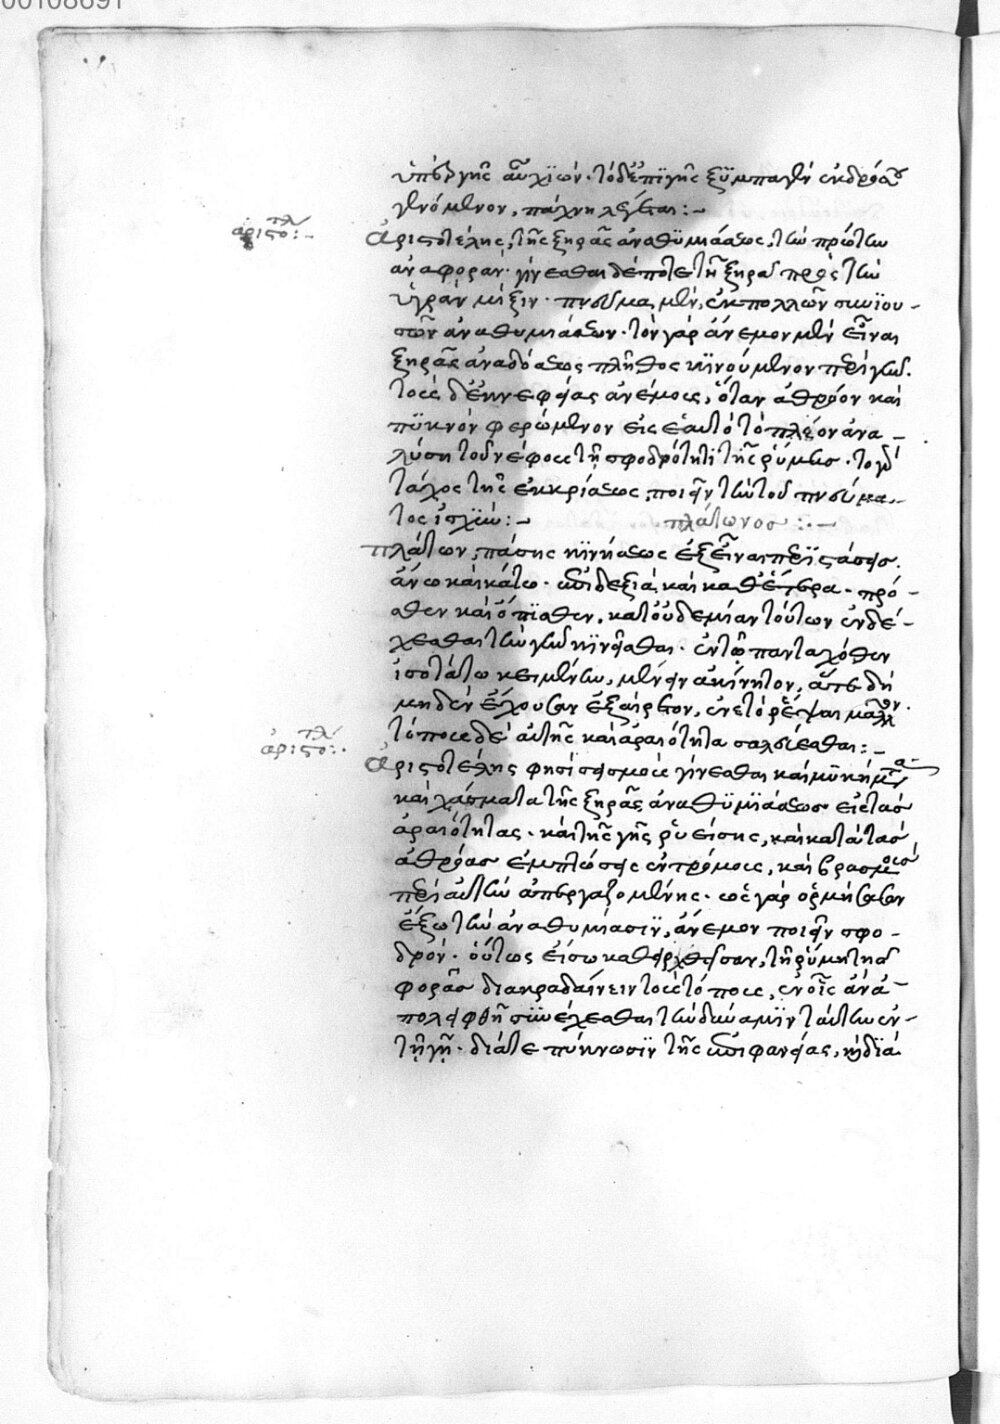 00108691
ὑπὲρ γῆς αὖ χιών· τὸ δ' ἐπὶ γῆς ξϋμπαγὲν ἐκ δρόσου
γενόμενον, πάχνη λέγεται :~
ἀριστοτλ :~
Ἀριστοτέλης, τῆς ξηρᾶς ἀναθϋμιάσεως, τὼ πρώτω
ἀναφοράν· γίνεσθαι δέ ποτε τῆ ξηρᾶ πρὸς τὼ
ὑγρὰν μίξιν· πνεῦμα μὲν, ἐκ πολλῶν συνϊου-
σῶν ἀναθυμιάσεων· τὸν γὰρ ἄνεμον μὲν εἶναι
ξηρᾶς ἀναδόσεως πλῆθος κϊνούμενον περὶ γῆν.
τοὺς δ' ἐκνεφίας ἀνέμους, ὅταν ἀθρόον καὶ
πϋκνὸν φερώμενον εἰς ἑαυτὸ τὸ πλέον ἀνα-
λύση τοῦ νέφους τῆ σφοδρότητι τῆς ῥύμης· τὸ δὲ
τάχος τῆς ἐκκρίσεως ποιεῖν τὼ τοῦ πνεύμα-
τος ἰσχὺν :~ πλάτωνος :~
Πλάτων, πάσης κϊνήσεως ἓξ εἶναι περϊστάσεις.
ἄνω καὶ κάτω· ἐπὶ δεξιὰ καὶ καθέτερα· πρό-
σθεν καὶ ὄπϊσθεν, κατ' οὐδεμίαν τούτων ἐνδέ-
χεσθαι τὼ γῆν κϊνεῖσθαι· ἐν τῶ πανταχόθεν
ἰσοτάτω κειμένην, μένειν ἀκίνητον, ἅτε δὴ
μηδὲν ἔχουσαν ἐξαίρετον, ἐν ετὸ ῥέψαι μᾶλλον.
τόπους δὲ αὐτῆς κατ' ἀραιότητα σαλεύεσθαι :~
ἀριστοτλ :·
Ἀριστοτέλης φησὶ σεισμοὺς γίνεσθαι καὶ μϋκήματα
καὶ χάσματα τῆς ξηρᾶς ἀναθϋμϊάσεως εἰς τὰς
ἀραιότητας· καὶ τῆς γῆς ῥυείσης, καὶ κατὰ τὰς
ἀθρόας ἐμπτώσεις ἐντρόμους, καὶ βρασμοὺς
περὶ αὐτὼ ἀπεργαζομένης· ὡς γὰρ ὁρμήσασαν
ἔξω τὼ ἀναθυμίασϊν, ἄνεμον ποιεῖν σφο-
δρόν· οὕτως εἴσω καθειρχθεῖσαν, τῆ ῥύμη τῆς
φορᾶς διακραδαίνειν τοὺς τόπους, ἐν οἷς ἀνα-
πολειφθῆ συνέχεσθαι τὼ δύναμϊν ταύτην ἐν
τῆ γῆ· διά τε πύκνωσϊν τῆς ἐπιφανείας, ἢ διὰ